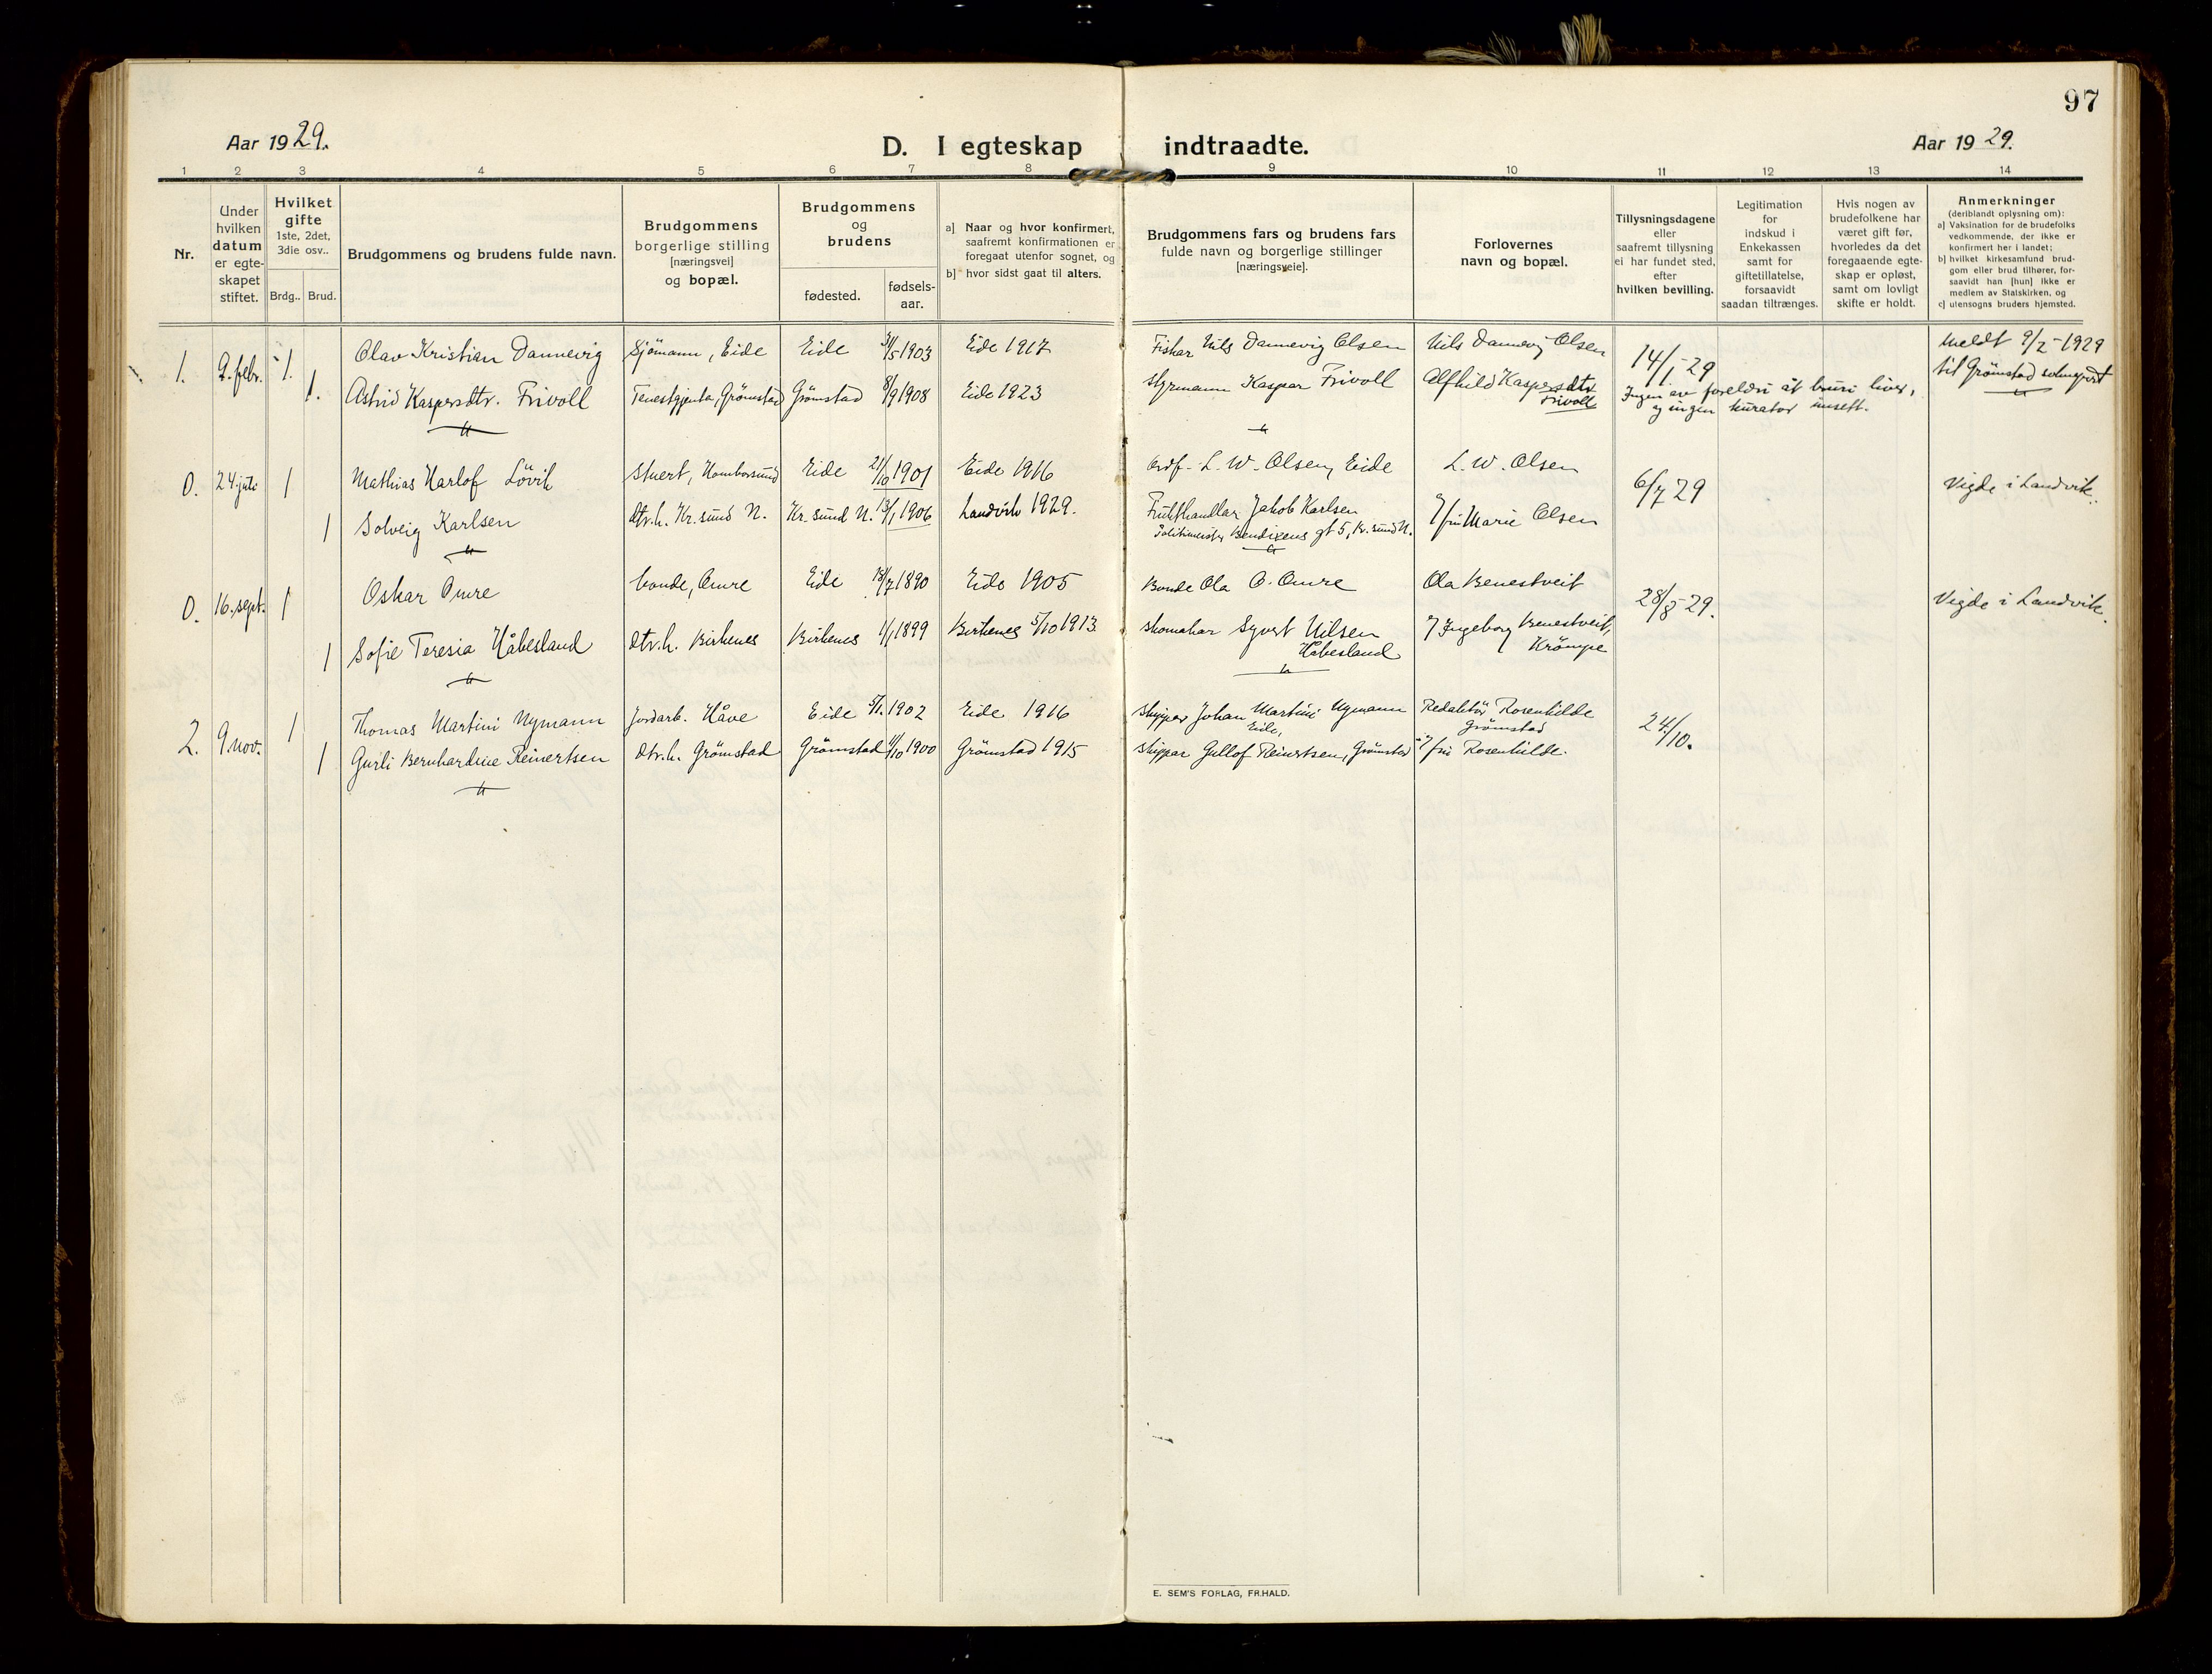 97
Aar 1929.
D. I egteskap indtraadte.
Aar 1929.
1 2 3 4 5 6 7 8 9 10 11 12 13 14
Nr.
Under
hvilken
datum
er egte-
skapet
stiftet.
Hvilket
gifte
1ste, 2det,
3die osv..
Brdg.. Brud.
Brudgommens og brudens fulde navn.
Brudgommens
borgerlige stilling
[næringsvei]
og bopæl.
Brudgommens
og
brudens
fødested.
fødsels-
aar.
a] Naar og hvor konfirmert,
saafremt konfirmationen er
foregaat utenfor sognet, og
b] hvor sidst gaat til alters.
Brudgommens fars og brudens fars
fulde navn og borgerlige stillinger
[næringsveie].
Forlovernes
navn og bopæl.
Tillysningsdagene
eller
saafremt tillysning
ei har fundet sted,
efter
hvilken bevilling.
Legitimation
for
indskud i
Enkekassen
samt for
giftetillatelse,
forsaavidt
saadan tiltrænges.
Hvis nogen av
brudefolkene har
været gift før,
hvorledes da det
foregaaende egte-
skap er opløst,
samt om lovligt
skifte er holdt.
Anmerkninger
(deriblandt oplysning om):
a) Vaksination for de brudefolks
vedkommende, der ikke er
konfirmert her i landet;
b) hvilket kirkesamfund brud-
gom eller brud tilhører, for-
saavidt han [hun] ikke er
medlem av Statskirken, og
c) utensogns bruders hjemsted.
1. 9. febr. 1. Olav Kristian Dannevig Sjömann, Eide Eide 1903 Eide 1917 Fiskar Nils Dannevig Olsen Nils Dannevig Olsen 14/1-29 Meldt 9/2-1929
1. Astrid Kaspersdtr. Frivoll Tenestgjenta, Grömstad Grömstad 8/9 1908 Eide 1923 Styrmann Kaspar Frivoll Alfhild Kaspersdtr. til Grömstad
Frivoll
Ingen av foreldri åt bruri liver,
og ingen kurator innsett.
0. 24. juli 1 Mathias Harlof Lövik Stuert, Homborsund Eide 21/10 1901 Eide 1916 Ordf. L. W. Olsen, Eide L. W. Olsen 6/7 29 Vigde i Landvik.
1 Solveig Karlsen dtr. h. Kr.sund N. Kr.sund N. 13/1 1906 Landvik 1929. Frukthandlar Jakob Karlsen fru Marie Olsen
Politimester Bendixens gt 5, Kr.sund N.
0. 16. sept. 1 Oskar Omre bonde, Omre Eide 1890 Eide 1905 Bonde Ola O. Omre Ola Benestveit 28/8-29. Vigde i Landvik.
1 Sofie Teresia Håbesland dtr. h. Birkenes Birkenes 1/1 1899 Birkenes 5/10 1913 Skomakar Syvert Nilsen Ingeborg Benestveit,
Håbesland Krömpe
2. 9. nov. 1 Thomas Martini Nymann Jordarb. Håve Eide 1902 Eide 1916 Skippar Johan Martini Nymann Redaktör Rosenkilde 24/10.
Eide, Grömstad
1 Gurli Bernhardine Reinertsen dtr. h. Grömstad Grömstad 1900 Grömstad 1915 Skippar Gullof Reinertsen, Grömstad fru Rosenkilde.
E. SEM'S FORLAG, FR.HALD.